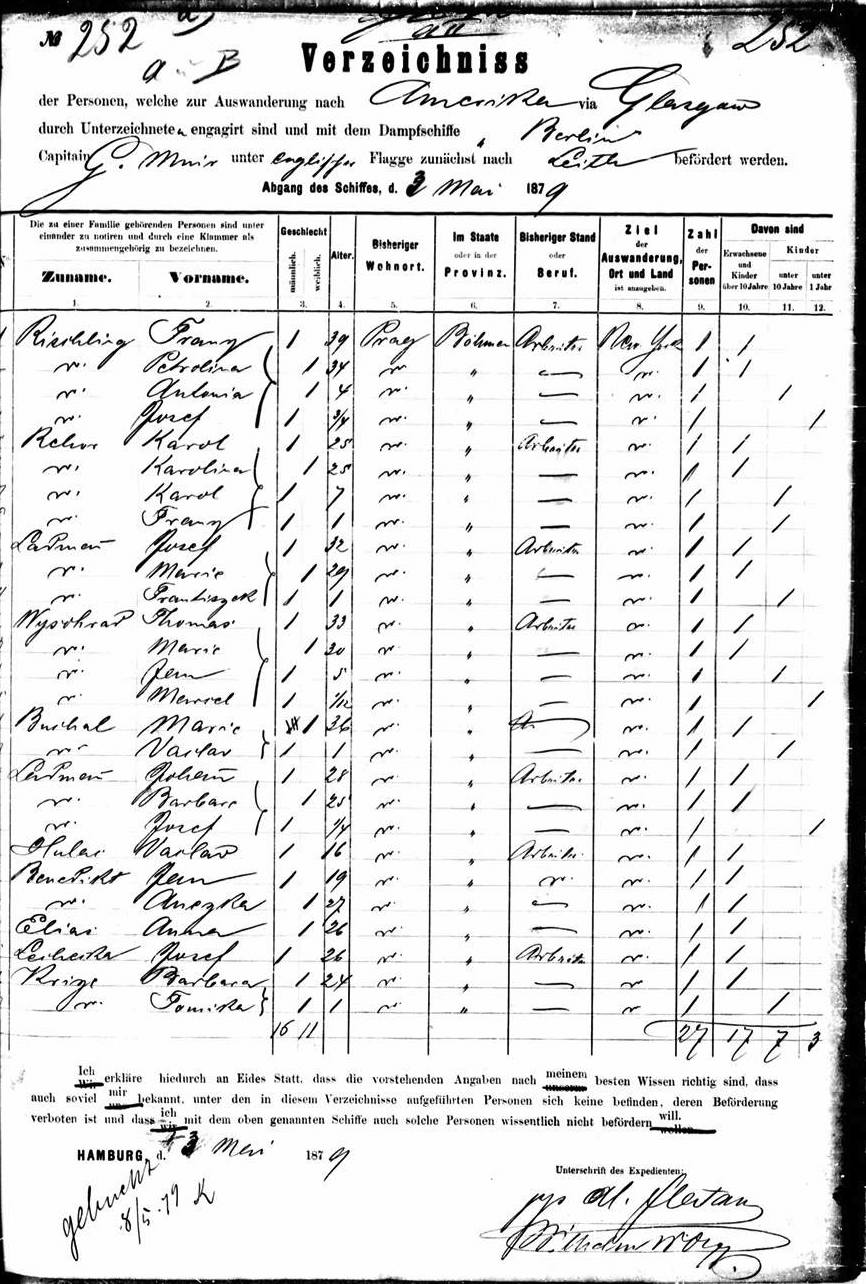 № 252 252
a B
Verzeichniss
der Personen, welche zur Auswanderung nach Amerika via Glasgow
durch Unterzeichneten engagirt sind und mit dem Dampfschiffe Berlin
Capitain G. Muir unter englischer Flagge zunächst nach Leith befördert werden.
Abgang des Schiffes, d. 3 Mai 1879
Die zu einer Familie gehörenden Personen sind unter einander zu notiren und durch eine Klammer als zusammengehörig zu bezeichnen. Geschlecht Alter. Bisheriger Wohnort. Im Staate oder in der Provinz. Bisheriger Stand oder Beruf. Ziel der Auswanderung, Ort und Land ist anzugeben. Zahl der Personen Davon sind
Zuname. Vorname. männlich. weiblich. Erwachsene und Kinder über 10 Jahre Kinder unter 10 Jahre unter 1 Jahr
1. 2. 3. 4. 5. 6. 7. 8. 9. 10. 11. 12.
Rischling Franz 1 39 Prag Böhmen Arbeiter New York 1 1
" Petrolina 1 34 " " — " 1 1
" Antonia 1 4 " " — " 1 1
" Josef 1 3/4 " " — " 1 1
Rehor Karol 1 25 " " Arbeiter " 1 1
" Karolina 1 25 " " — " 1 1
" Karol 1 7 " " — " 1 1
" Franz 1 1 " " — " 1 1
Josef 1 32 " " Arbeiter " 1 1
" Marie 1 29 " " — " 1 1
" Frantiszek 1 1 " " — " 1 1
Wysohrad Thomas 1 33 " " Arbeiter " 1 1
" Marie 1 30 " " — " 1 1
" 1 5 " " — " 1 1
" 1 1/12 " " — " 1 1
Buchal Marie 1 26 " " — " 1 1
" Vaclav 1 1 " " — " 1 1
Johann 1 28 " " Arbeiter " 1 1
" Barbara 1 25 " " — " 1 1
" Josef 1 1/4 " " — " 1 1
Vaclav 1 16 " " Arbeiter " 1 1
Benedikt 1 19 " " " " 1 1
" Anezka 1 27 " " — " 1 1
Elias Anna 1 26 " " — " 1 1
Josef 1 26 " " Arbeiter " 1 1
Krize Barbara 1 24 " " — " 1 1
" 1 1 " " — " 1 1
16 11 27 17 7 3
Ich erkläre hiedurch an Eides Statt, dass die vorstehenden Angaben nach meinem besten Wissen richtig sind, dass
auch soviel mir bekannt, unter den in diesem Verzeichnisse aufgeführten Personen sich keine befinden, deren Beförderung
verboten ist und dass ich mit dem oben genannten Schiffe auch solche Personen wissentlich nicht befördern will.
HAMBURG, d. 3 Mai 1879
Unterschrift des Expedienten:
gebucht
8/5.79 K
Wilhelm